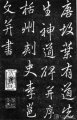 唐故葉有道先
生神道碑并序
括州刺史李邕
文并書